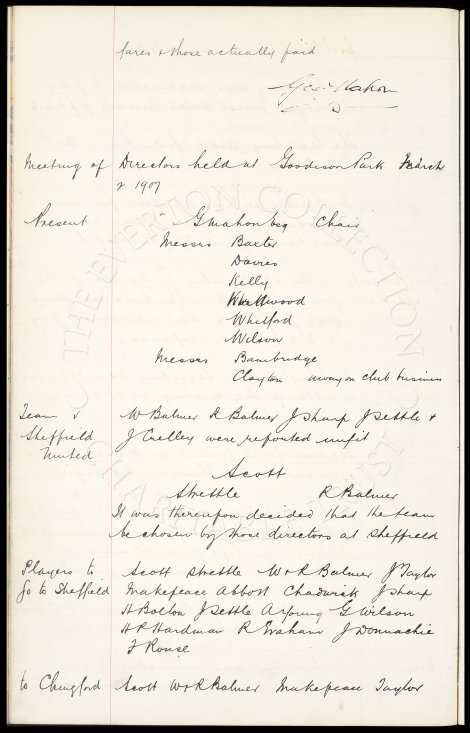 fares & those actually paid
Geo Mahon
Meeting of Directors held at Goodison Park March
2 1907
Present G Mahon Esq Chair
Messrs Baxter
Davies
Kelly
Wilson
Whitford
Messrs Bainbridge
Clayton away on club business
Team v W Balmer R Balmer J Sharp J Settle &
Sheffield J Crelley were reported unfit
United
Scott
Strettle R Balmer
It was thereupon decided that the team
be chosen by those directors at Sheffield
Players to Scott Strettle W & R Balmer J Taylor
go to Sheffield Makepeace Abbott Chadwick J Sharp
H Bolton J Settle A Young G Wilson
H P Hardman R Graham J Donnachie
F Rouse
to Chingford Scott W & R Balmer Makepeace Taylor
THE EVERTON COLLECTION